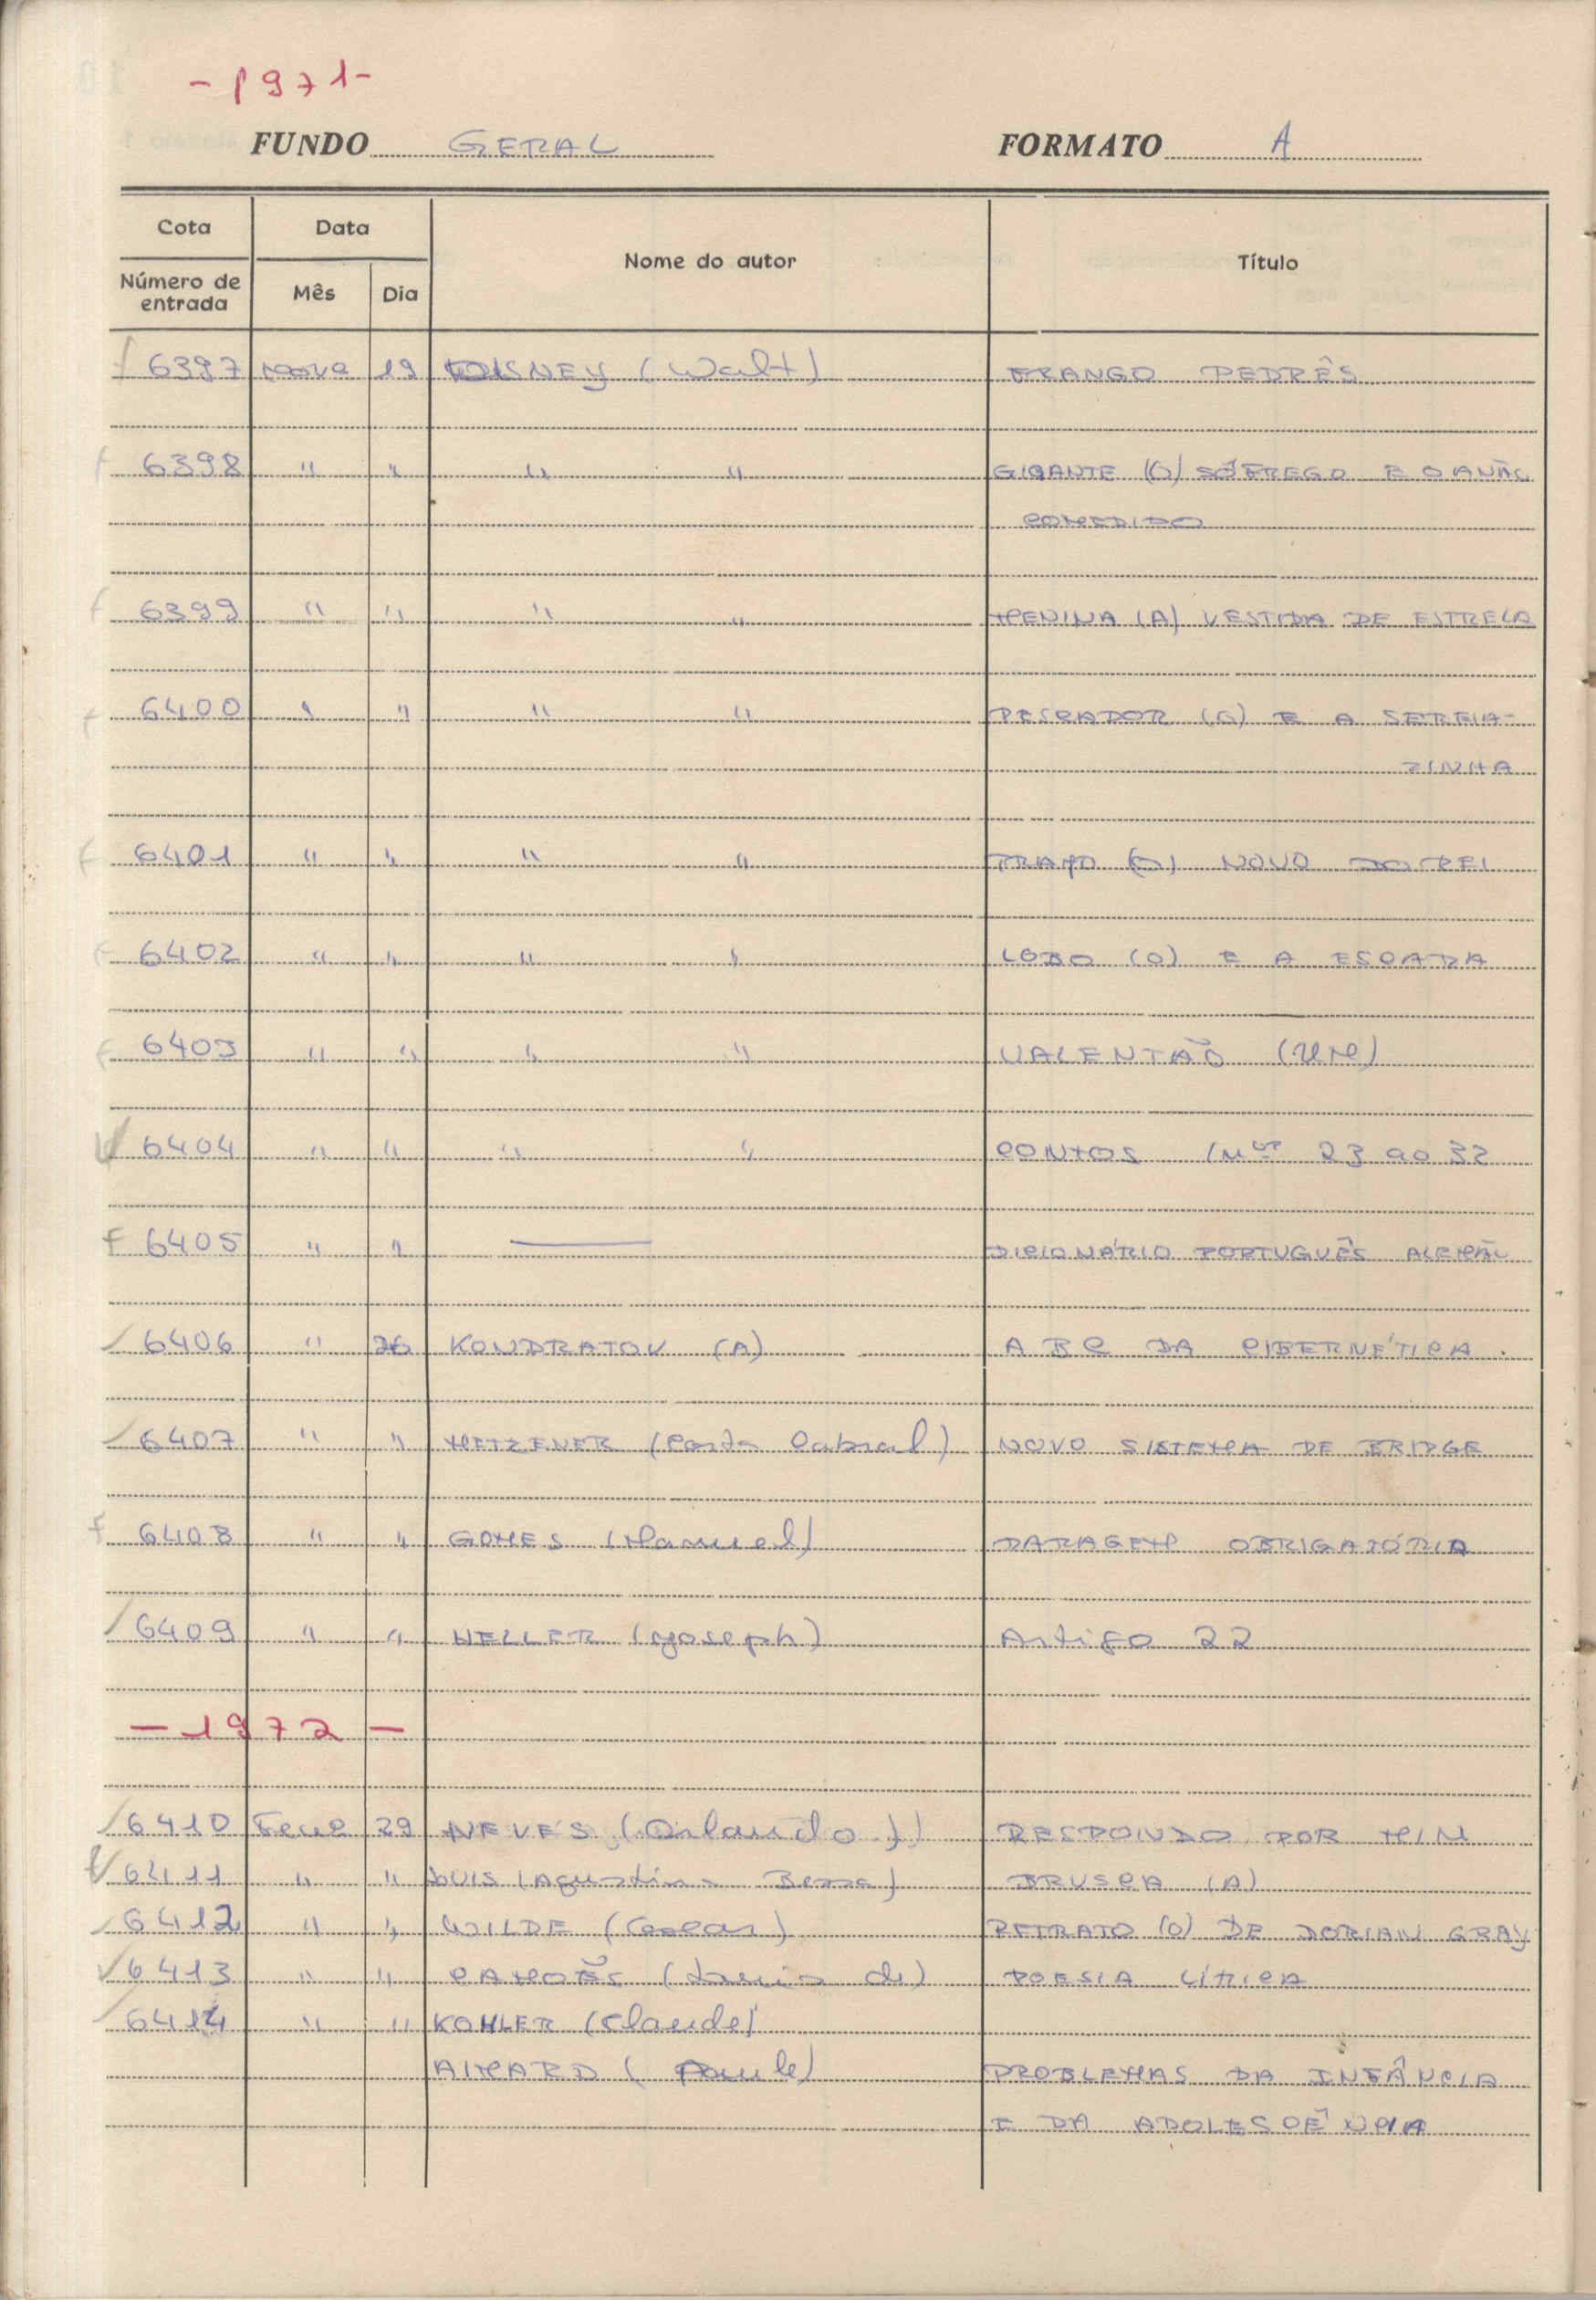 - 1971 -
FUNDO GERAL FORMATO A
Cota Data Nome do autor Título
Número de entrada Mês Dia
6397 19 DISNEY (Walt) FRANGO PEDRÊS
6398 " " " " GIGANTE (O) SÔFREGO E O ANÃO
COMEDIDO
6399 " " " " MENINA (A) VESTIDA DE ESTRELA
6400 " " " " PESCADOR (O) E A SEREIA-
ZINHA
6401 " " " " TRAJO (O) NOVO DO REI
6402 " " " " LOBO (O) E A ESCADA
6403 " " " " VALENTÃO (UM)
6404 " " " " CONTOS (Nos 23 ao 32
6405 " " — DICIONÁRIO PORTUGUÊS ALEMÃO
6406 " 26 KONDRATOV (A) A B C DA CIBERNÉTICA
6407 " " METZENER (Costa Cabral) NOVO SISTEMA DE BRIDGE
6408 " " GOMES (Manuel) PARAGEM OBRIGATÓRIA
6409 " " HELLER (Joseph) Artigo 22
- 1972 -
6410 Feve 29 NEVES (Orlando) RESPONDO POR MIM
6411 " " LUIS (Agustina Bessa) BRUSCA (A)
6412 " " WILDE (Oscar) RETRATO (O) DE DORIAN GRAY
6413 " " CAMÕES (Luis de) POESIA LÍRICA
6414 " " KOHLER (Claude)
AIMARD (Paule) PROBLEMAS DA INFÂNCIA
E DA ADOLESCÊNCIA